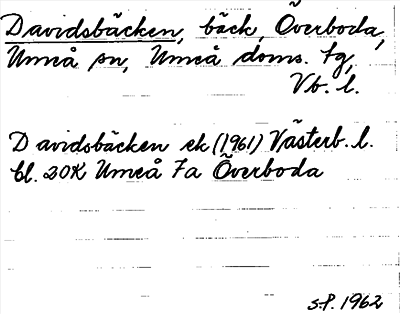 Davidsbäcken, bäck, Överboda,
Umeå sn, Umeå doms. tg,
Vb. l.
Davidsbäcken ek (1961) Västerb. l.
bl. 20K Umeå 7a Överboda
s.f. 1962